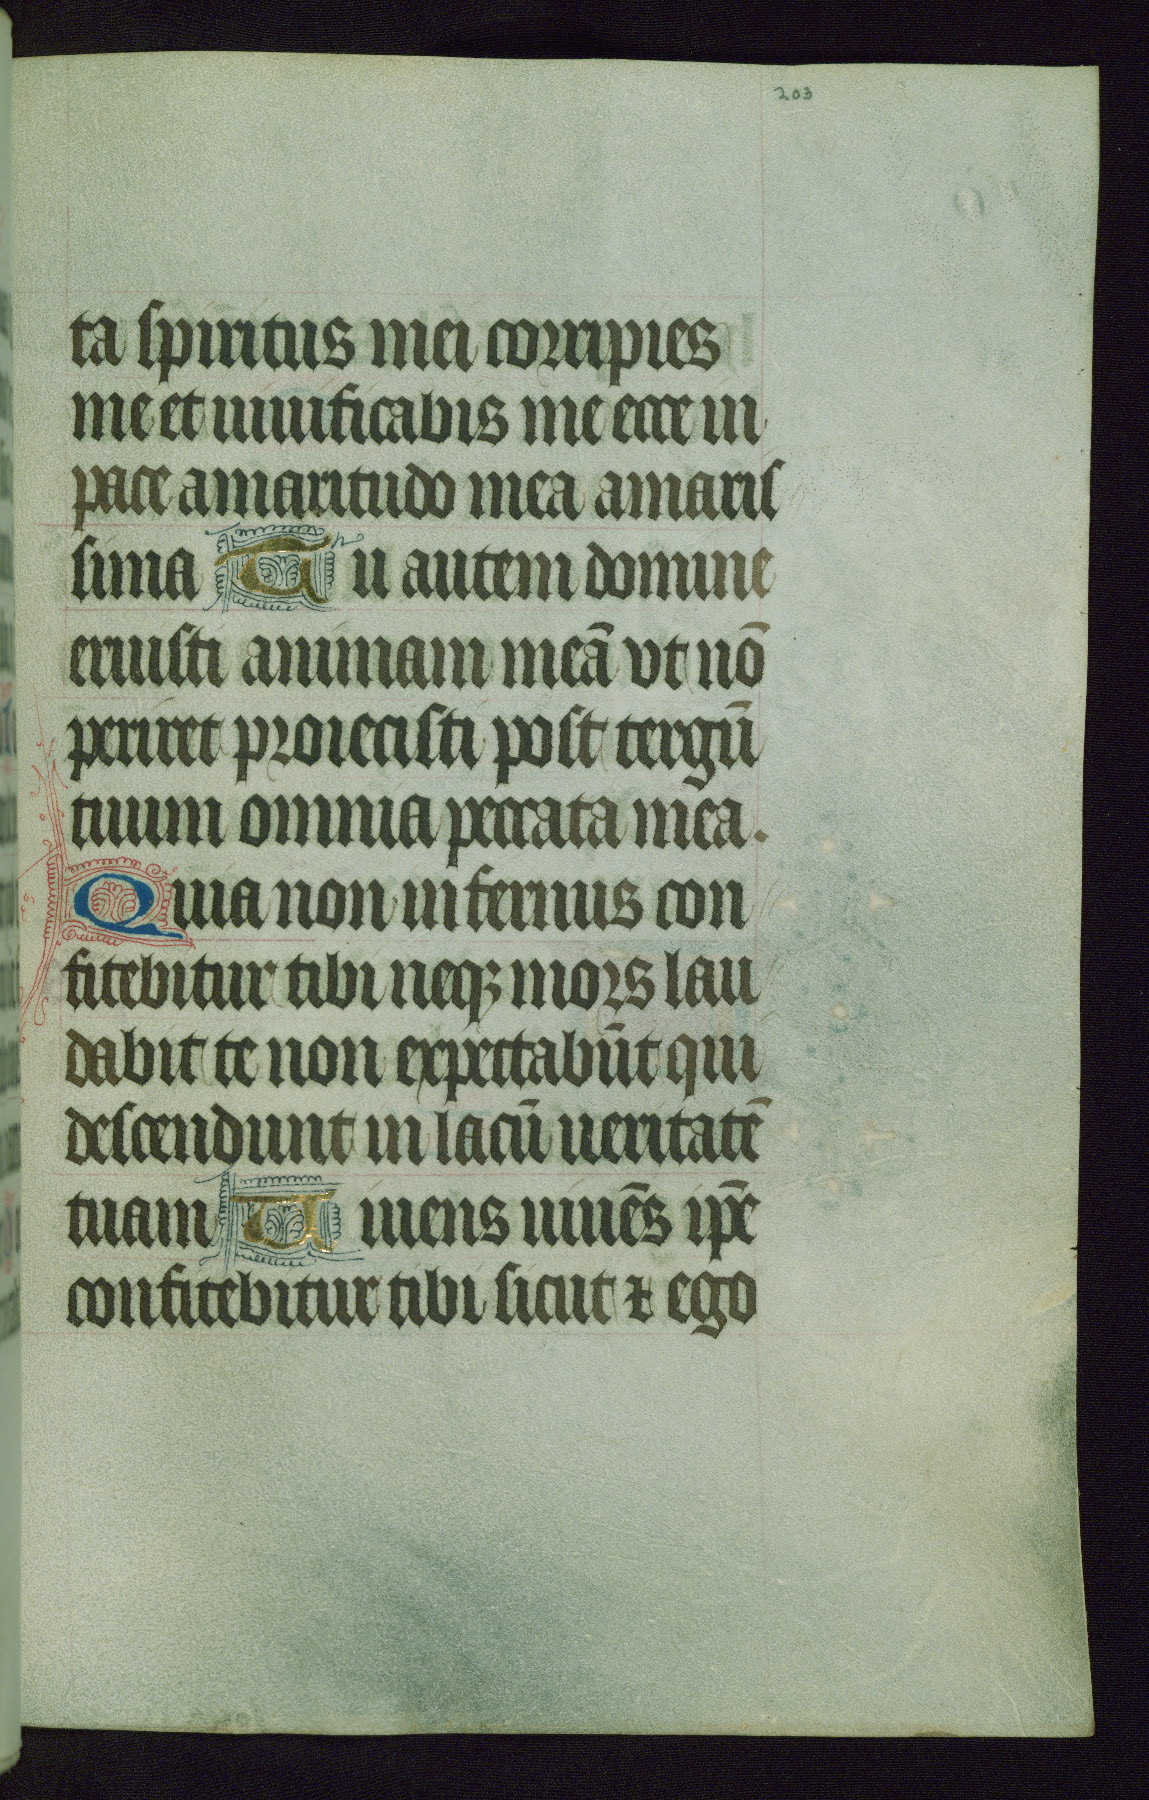 203
ta spiritus mei corripies
me et uiuificabis me ecce in
pace amaritudo mea amaris
sima Tu autem domine
eruisti animam meā vt nō
periret proiecisti post tergū
tuum omnia peccata mea.
Quia non infernus con
fitebitur tibi neqꝫ mors lau
dabit te non expectabūt qui
descendunt in lacū ueritatē
tuam Uiuens uiuēs ip̄e
confitebitur tibi sicut ⁊ ego